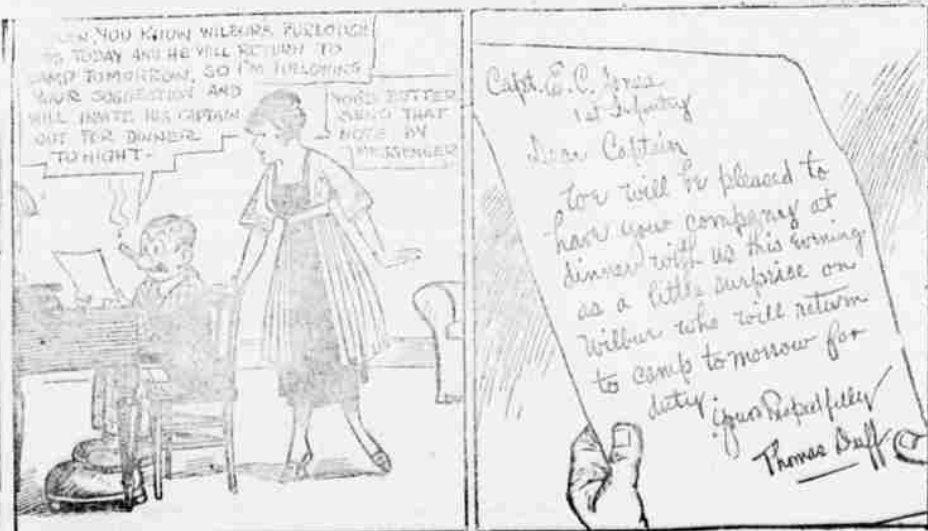 YOU KNOW WILBURS FURLOUGH
IS TODAY AND HE WILL RETURN TO
CAMP TOMORROW, SO I'M FOLLOWING
YOUR SUGGESTION AND
WILL INVITE HIS CAPTAIN
OUT FOR DINNER
TONIGHT-
BETTER
SEND THAT
NOTE BY
MESSENGER
Capt. E. C. Jones
1st Infantry
Dear Captain
We will be pleased to
have your company at
dinner with us this evening
as a little surprise on
Wilbur who will return
to camp tomorrow for
duty.
Yours Respectfully
Thomas Duff